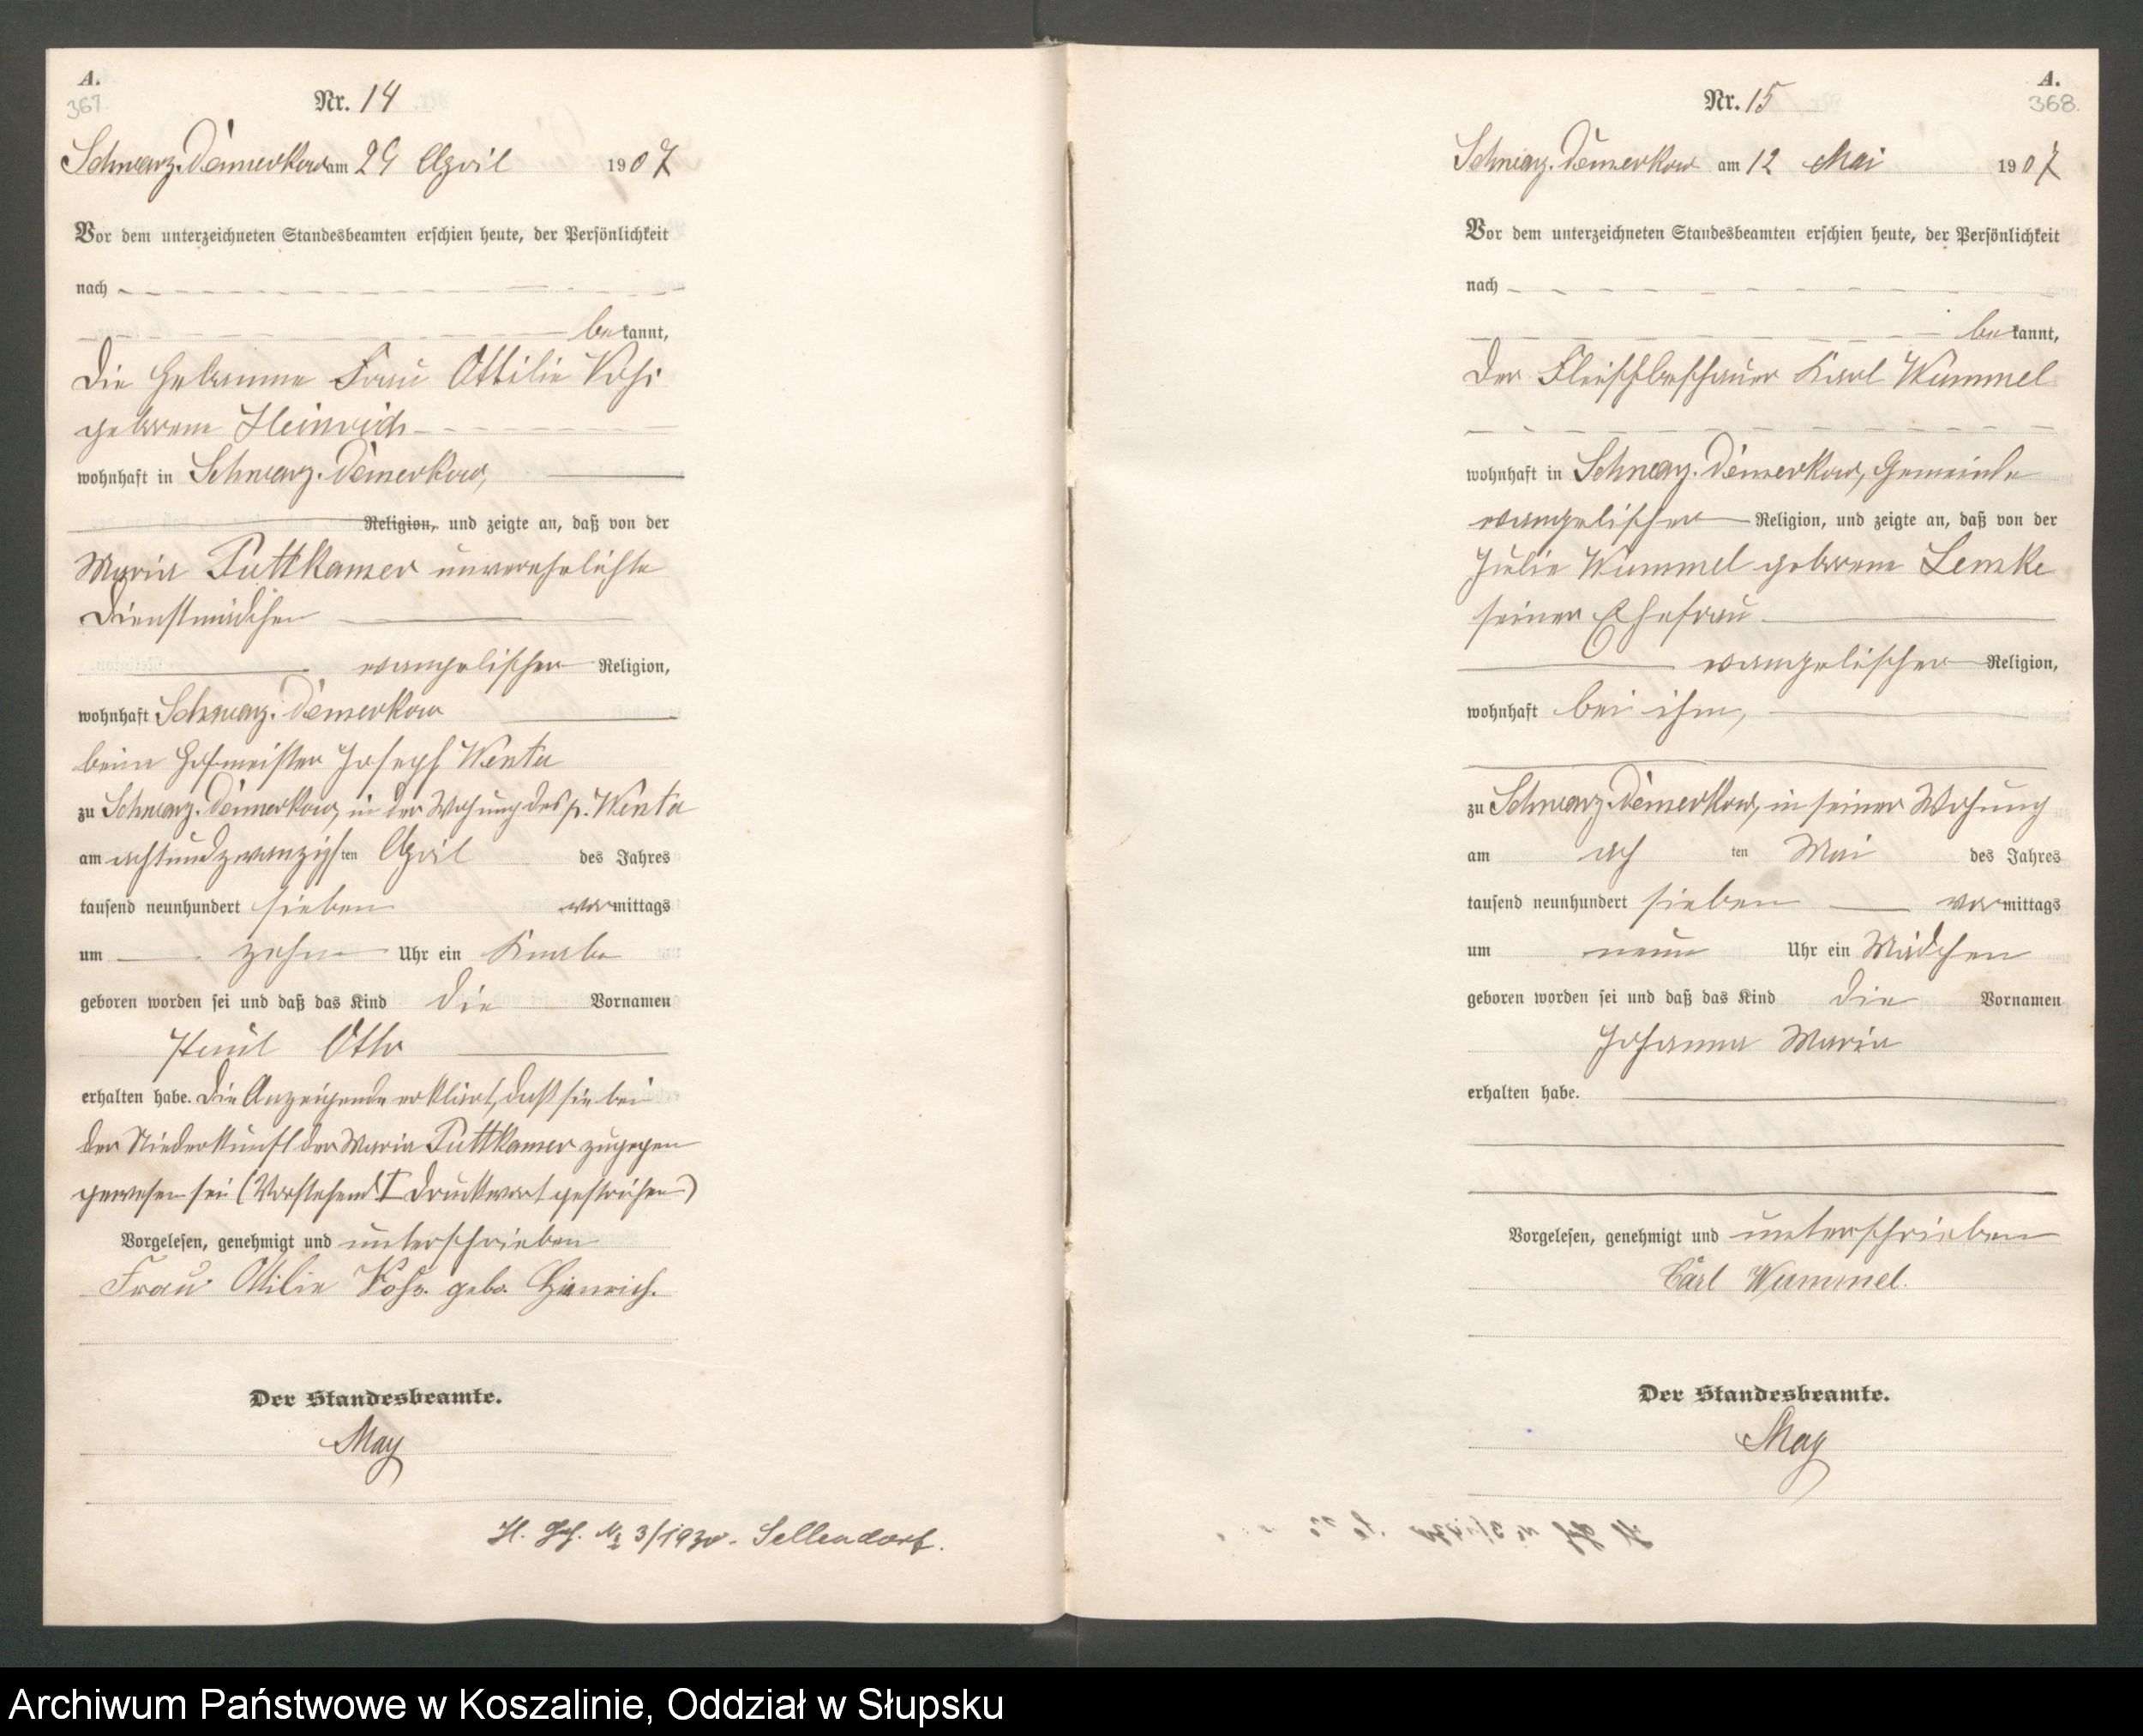 A.
367.
Nr. 14
Schwarz-Dämerkow am 29 April 1907
Vor dem unterzeichneten Standesbeamten erschien heute, der Persönlichkeit
nach
bekannt,
die Hebamme Frau Ottilie
geborene Heinrich
wohnhaft in Schwarz-Dämerkow,
Religion, und zeigte an, daß von der
Maria Puttkamer unverehelichte
Dienstmädchen
evangelischer Religion,
wohnhaft Schwarz-Dämerkow
beim Hofmeister Joseph Wenta
zu Schwarz-Dämerkow, in der Wohnung des p. Wenta
am achtundzwanzigsten April des Jahres
tausend neunhundert sieben vormittags
um zehn Uhr ein Knabe
geboren worden sei und daß das Kind die Vornamen
Paul Otto
erhalten habe. Die Anzeigende erklärt, daß sie bei
der Niederkunft der Maria Puttkamer zugegen
gewesen sei (Vorstehend 1 Druckwort gestrichen)
Vorgelesen, genehmigt und unterschrieben
Frau Ottilie geb. Heinrich.
Der Standesbeamte.
May
H. Geb. No 3/1930. Sellendorf.
A.
368.
Nr. 15
Schwarz-Dämerkow am 12 Mai 1907
Vor dem unterzeichneten Standesbeamten erschien heute, der Persönlichkeit
nach
bekannt,
der Fleischbeschauer Karl Wummel
wohnhaft in Schwarz-Dämerkow, Gemeinde
evangelischer Religion, und zeigte an, daß von der
Julie Wummel geborene Lemke
seiner Ehefrau
evangelischer Religion,
wohnhaft bei ihm,
zu Schwarz-Dämerkow, in seiner Wohnung
am achten Mai des Jahres
tausend neunhundert sieben vormittags
um neun Uhr ein Mädchen
geboren worden sei und daß das Kind die Vornamen
Johanna Maria
erhalten habe.
Vorgelesen, genehmigt und unterschrieben
Carl Wummel.
Der Standesbeamte.
May
Archiwum Państwowe w Koszalinie, Oddział w Słupsku